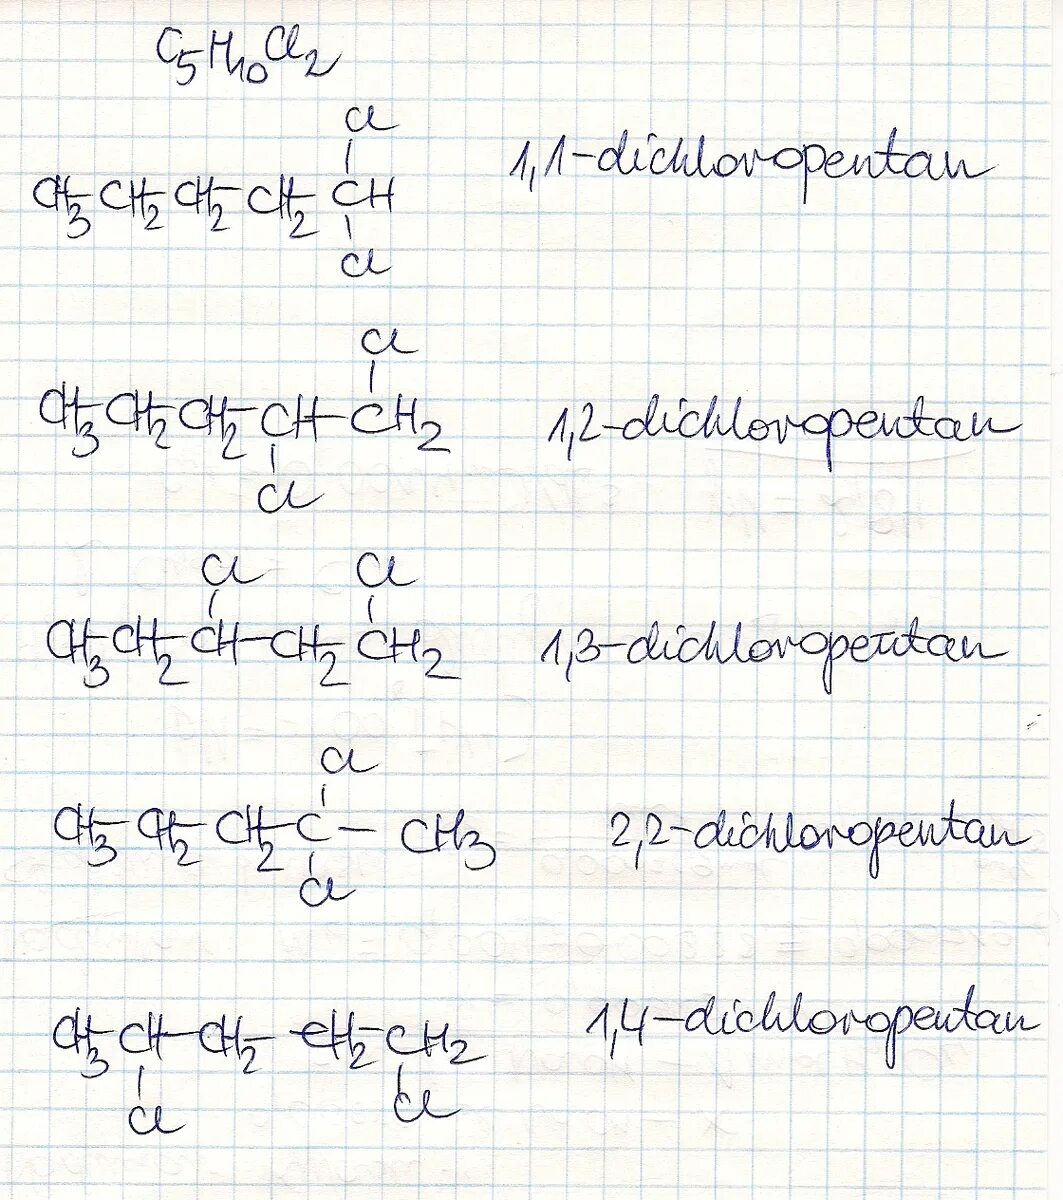 C5H10Cl2
Cl
CH3-CH2-CH2-CH2-CH 1,1-dichloropentan
Cl
Cl
CH3-CH2-CH2-CH-CH2 1,2-dichloropentan
Cl
Cl Cl
CH3-CH2-CH-CH2-CH2 1,3-dichloropentan
Cl
CH3-CH2-CH2-C-CH3 2,2-dichloropentan
Cl
CH3-CH-CH2-CH2-CH2 1,4-dichloropentan
Cl Cl